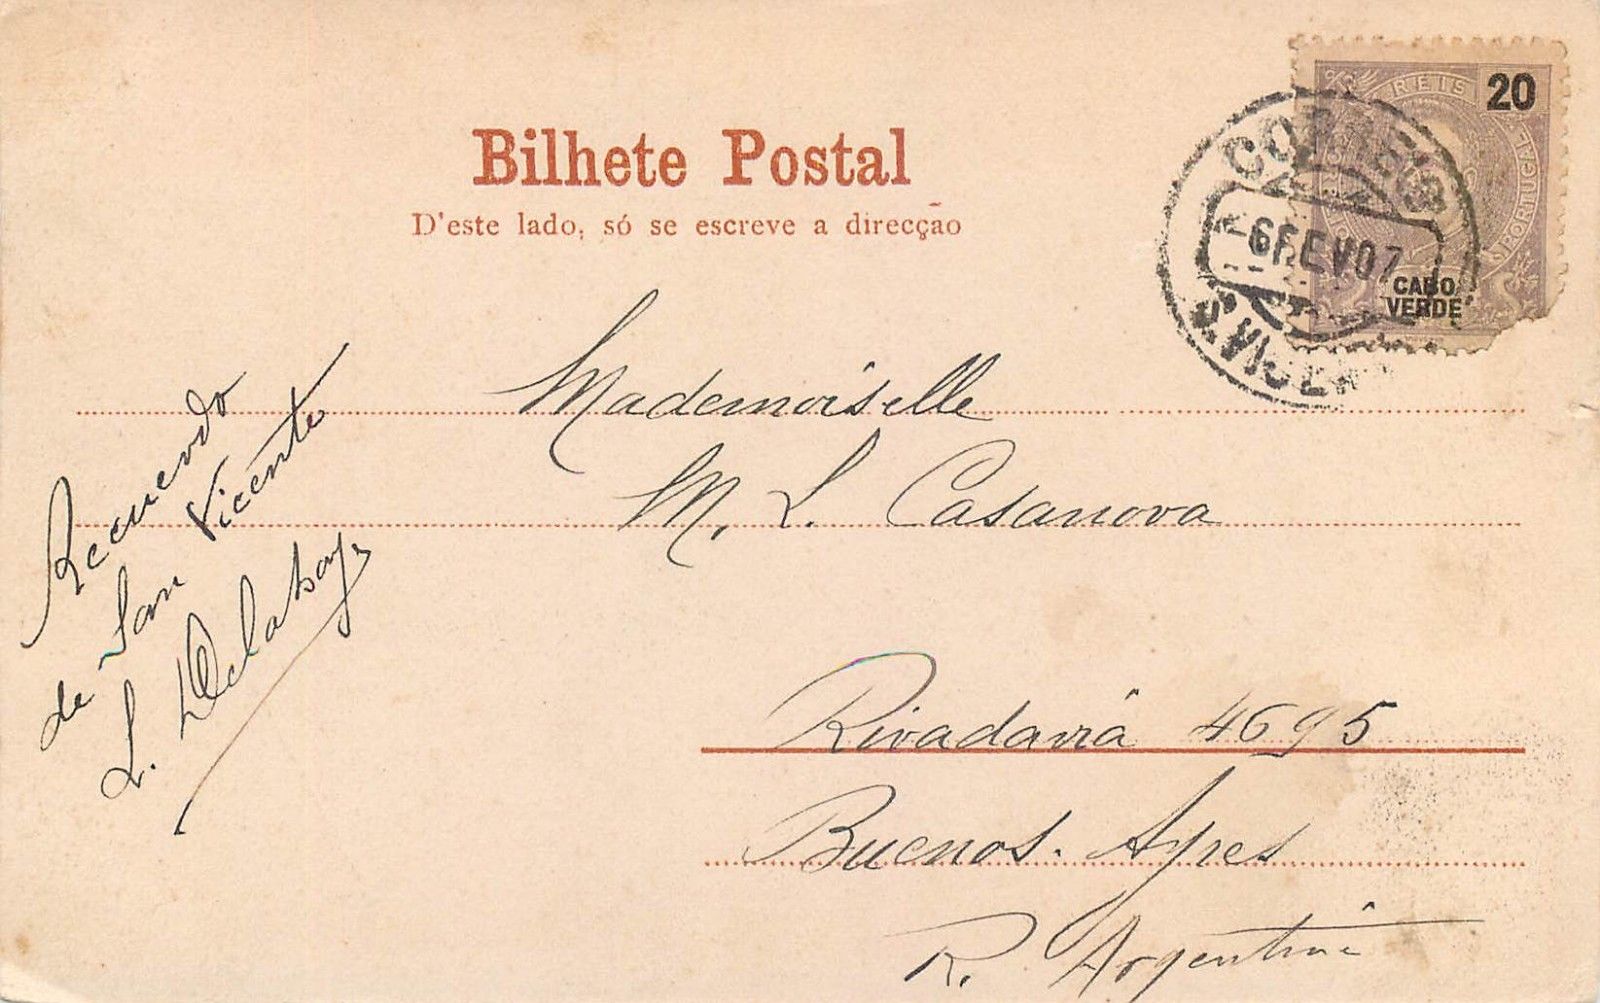 Bilhete Postal
D'este lado, só se escreve a direcção
REIS 20
PORTUGAL
CABO
VERDE
CORREIOS
6 FEV 07
S. VICEN
Mademoiselle
M. L. Casanova
Rivadavia 4695
Buenos. Ayres
R. Argentina
Recuerdo
de San Vicente
L. Delahay